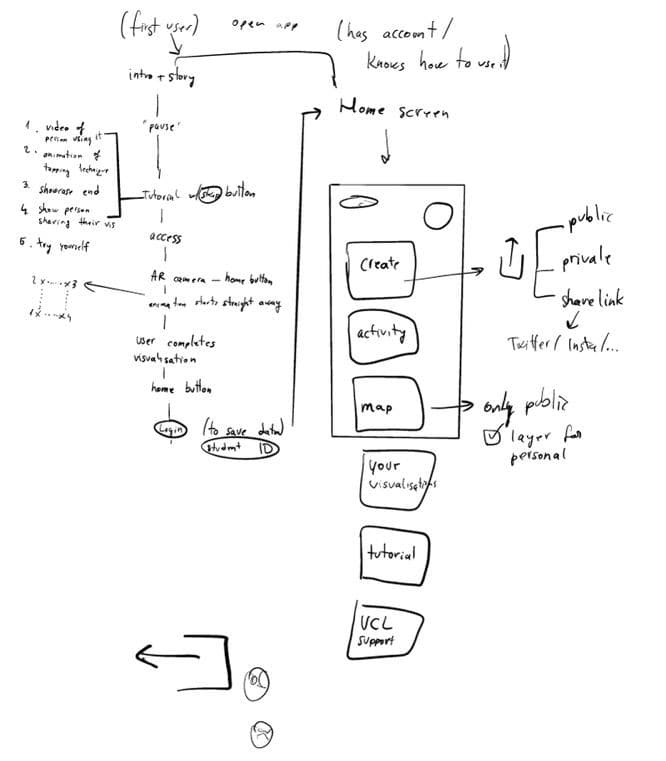 (first user)
open app
(has account/
knows how to use it)
intro + story
"pause"
1. video of
person using it
2. animation of
tapping technique
3. showcase end
4. show person
sharing their vis
5. try yourself
Tutorial w/ skip button
access
AR camera – home button
animation starts straight away
2 x....x3
1x....x4
user completes
visualisation
home button
Login (to save data)
student ID
Home screen
create
activity
map
your
visualisations
tutorial
UCL
support
public
private
share link
Twitter/ Insta/...
only public
layer for
personal